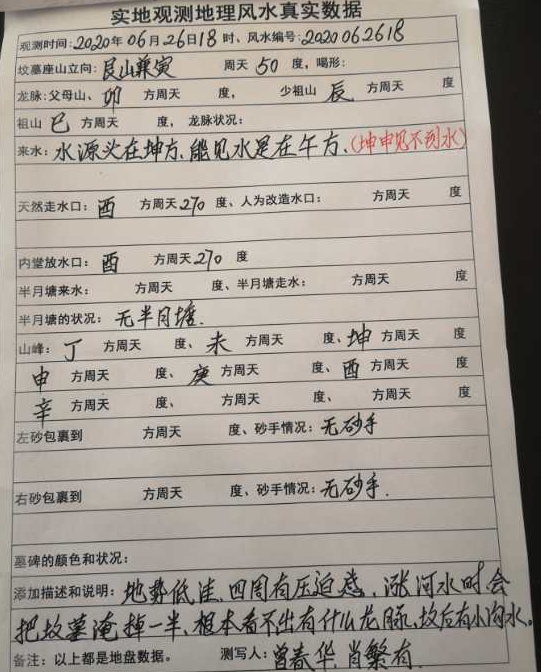 实地观测地理风水真实数据
观测时间:2020年06月26日18时、风水编号:2020062618
坟墓座山立向:艮山兼寅 周天50度,喝形:
龙脉:父母山、卯 方周天 度, 少祖山 辰 方周天 度
祖山 巳 方周天 度,龙脉状况:
来水:水源头在坤方、能见水是在午方、(坤申见不到水)
天然走水口:酉 方周天270度、人为改造水口: 方周天 度
内堂放水口:酉 方周天270度
半月塘来水: 方周天 度、半月塘走水: 方周天 度
半月塘的状况:无半月塘.
山峰:丁 方周天 度、未 方周天 度、坤 方周天 度
申 方周天 度、庚 方周天 度、酉 方周天 度
辛 方周天 度、 方周天 度、 方周天 度
左砂包裹到 方周天 度、砂手情况:无砂手
右砂包裹到 方周天 度、砂手情况:无砂手.
墓碑的颜色和状况:
添加描述和说明:地势低洼、四周有压迫感、涨河水时会
把坟墓淹掉一半、根本看不出有什么龙脉、坟后有小沟水。
备注:以上都是地盘数据。 测写人:曾春华 肖繁有